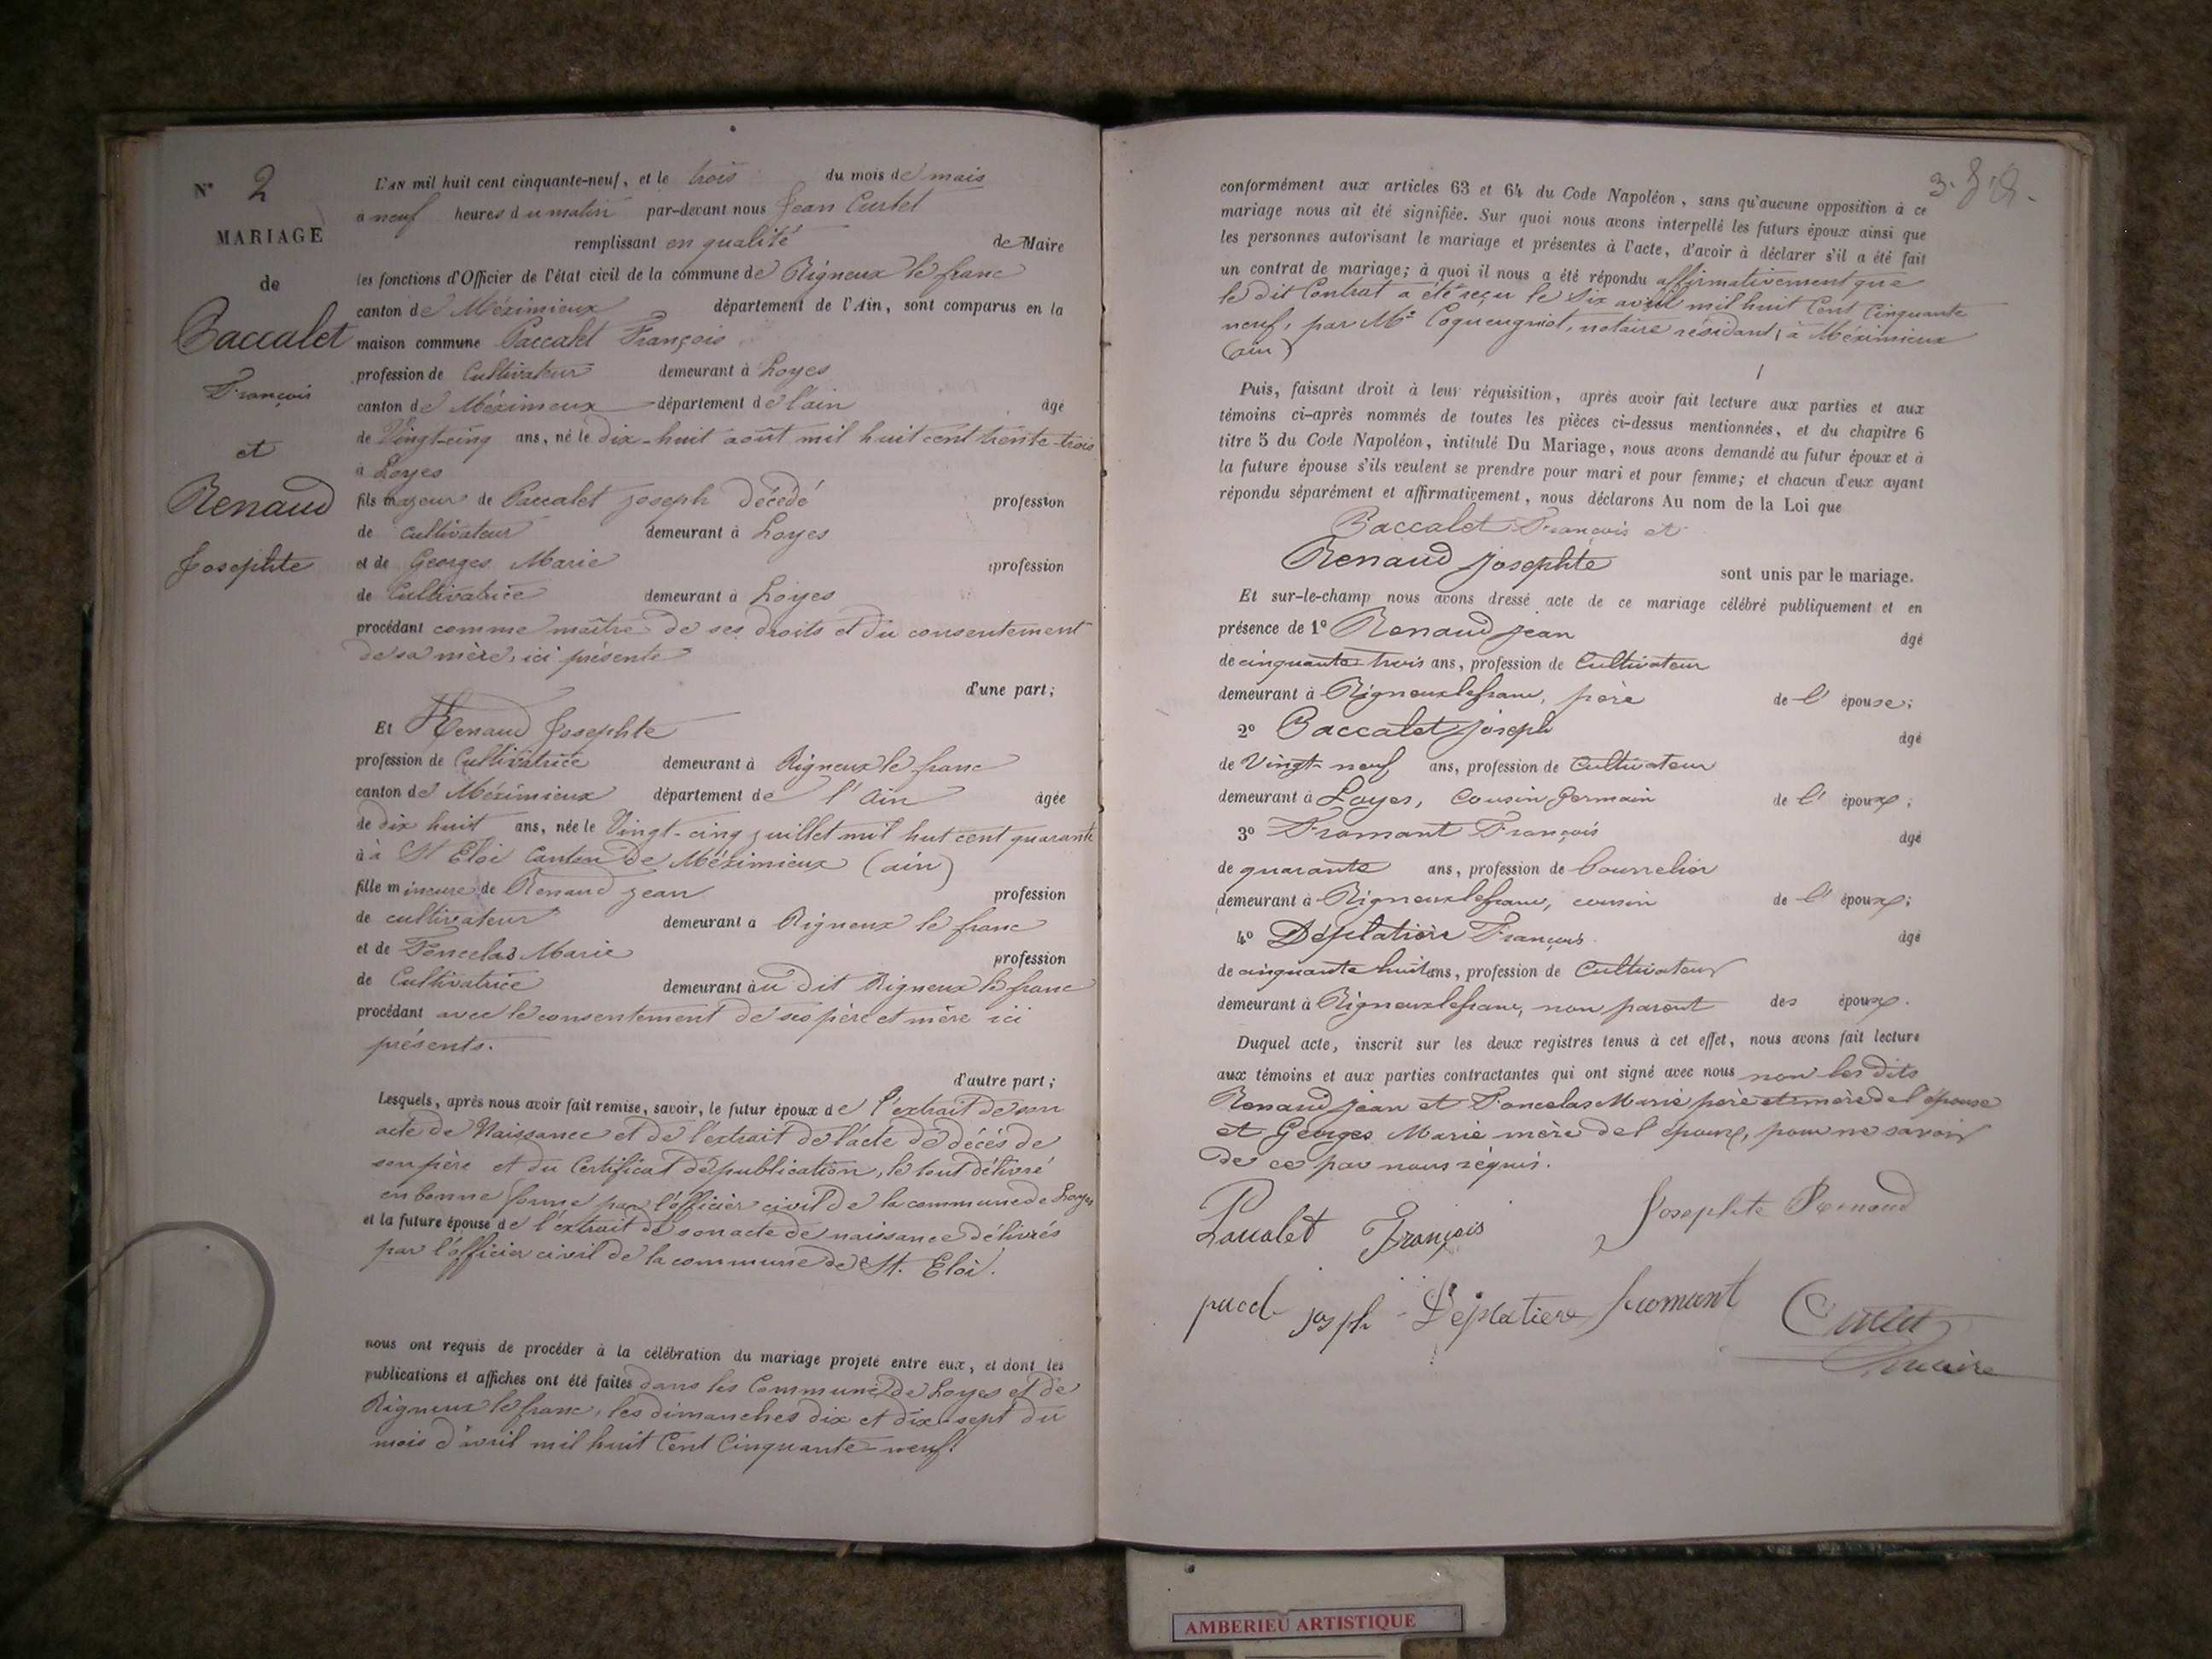 N° 2
MARIAGE
de
Paccalet
François
et
Renaud
Josephte
L'AN mil huit cent cinquante-neuf, et le trois du mois de mais
a neuf heures du matin par-devant nous Jean Curtet
remplissant en qualité de Maire
les fonctions d'Officier de l'état civil de la commune de Rigneux le franc
canton de Méximieux département de l'Ain, sont comparus en la
maison commune Paccalet François
profession de Cultivateur demeurant à Loyes
canton de Méximeux département de l'ain âgé
de Vingt-cinq ans, né le dix-huit août mil huit cent trente-trois
à Loyes
fils majeur de Paccalet joseph décédé profession
de cultivateur demeurant à Loyes
et de Georges Marie profession
de Cultivatrice demeurant à Loyes
procédant comme maître de ses droits et du consentement
de sa mère, ici présente
d'une part;
Et Renaud Josephte
profession de Cultivatrice demeurant à Rigneux le franc
canton de Méximieux département de l'Ain âgée
de dix huit ans, née le Vingt-cinq juillet mil huit cent quarante
à à St Eloi Canton de Méximieux (ain)
fille mineure de Renaud jean profession
de cultivateur demeurant a Rigneux le franc
et de Poncelas Marie profession
de Cultivatrice demeurant àu dit Rigneux le franc
procédant avec le consentement de ses père et mère ici
présents.
d'autre part;
Lesquels, après nous avoir fait remise, savoir, le futur époux de l'extrait de son
acte de Naissance et de l'extrait de l'acte de décés de
son père et du Certificat de publication, le tout délivré
en bonne forme par l'officier civil de la commune de Loyes
et la future épouse de l'extrait de son acte de naissance délivrés
par l'officier civil de la commune de St. Eloi.
nous ont requis de procéder à la célébration du mariage projeté entre eux, et dont les
publications et affiches ont été faites dans les Commune de Loyes et de
Rigneux le franc, les dimanches dix et dix-sept du
mois d'avril mil huit Cent Cinquante-neuf.
conformément aux articles 63 et 64 du Code Napoléon, sans qu'aucune opposition à ce
mariage nous ait été signifiée. Sur quoi nous avons interpellé les futurs époux ainsi que
les personnes autorisant le mariage et présentes à l'acte, d'avoir à déclarer s'il a été fait
un contrat de mariage; à quoi il nous a été répondu affirmativement que
le dit Contrat a été reçu le dix avril mil huit Cent Cinquante
neuf, par Me Coqueugniot, notaire résidant, à Méximieux
(ain)
Puis, faisant droit à leur réquisition, après avoir fait lecture aux parties et aux
témoins ci-après nommés de toutes les pièces ci-dessus mentionnées, et du chapitre 6
titre 5 du Code Napoléon, intitulé Du Mariage, nous avons demandé au futur époux et à
la future épouse s'ils veulent se prendre pour mari et pour femme; et chacun d'eux ayant
répondu séparément et affirmativement, nous déclarons Au nom de la Loi que
Paccalet François et
Renaud josephte sont unis par le mariage.
Et sur-le-champ nous avons dressé acte de ce mariage célébré publiquement et en
présence de 1° Renaud jean âgé
de cinquante-trois ans, profession de Cultivateur
demeurant à Rigneuxlefranc, père de l'épouse;
2° Paccalet joseph âgé
de Vingt-neuf ans, profession de Cultivateur
demeurant à Loyes, Cousin Germain de l'époux;
3° Fromant François âgé
de quarante ans, profession de bourrelier
demeurant à Rigneuxlefranc, cousin de l'époux;
4° Déplatière François âgé
de cinquante huit ans, profession de Cultivateur
demeurant à Rigneuxlefranc, non parent des époux.
Duquel acte, inscrit sur les deux registres tenus à cet effet, nous avons fait lecture
aux témoins et aux parties contractantes qui ont signé avec nous non les dits
Renaud jean et Poncelas Marie père et mère de l'épouse
et Georges Marie mère de l'époux, pour ne savoir
de ce par nous réquis.
Paccalet François Josephte Renaud
pacct josph Déplatiere fromant Curtet
maire
AMBERIEU ARTISTIQUE